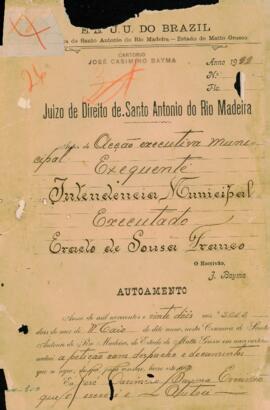 E. U. DO BRAZIL
de Santo Antonio do Rio Madeira — Estado de Matto Grosso
CARTORIO
JOSÉ CASIMIRO BAYMA
Anno 1922
N.
Fls.
26
Juizo de Direito de Santo Antonio do Rio Madeira
de Acção executiva muni
cipal
Exequente
Intendencia Municipal
Executado
Erado de Sousa Franco
O Escrivão,
J. Bayma
AUTOAMENTO
Anno de mil novecentos e vinte dois
dias do mez de Maio do dito anno, nesta Comarca de Santo
Antonio do Rio Madeira, do Estado de Matto Grosso em meu cartorio
a petição com despacho e documentos
que
Eu José Casimiro Bayma Escrivão
que o escrevi e